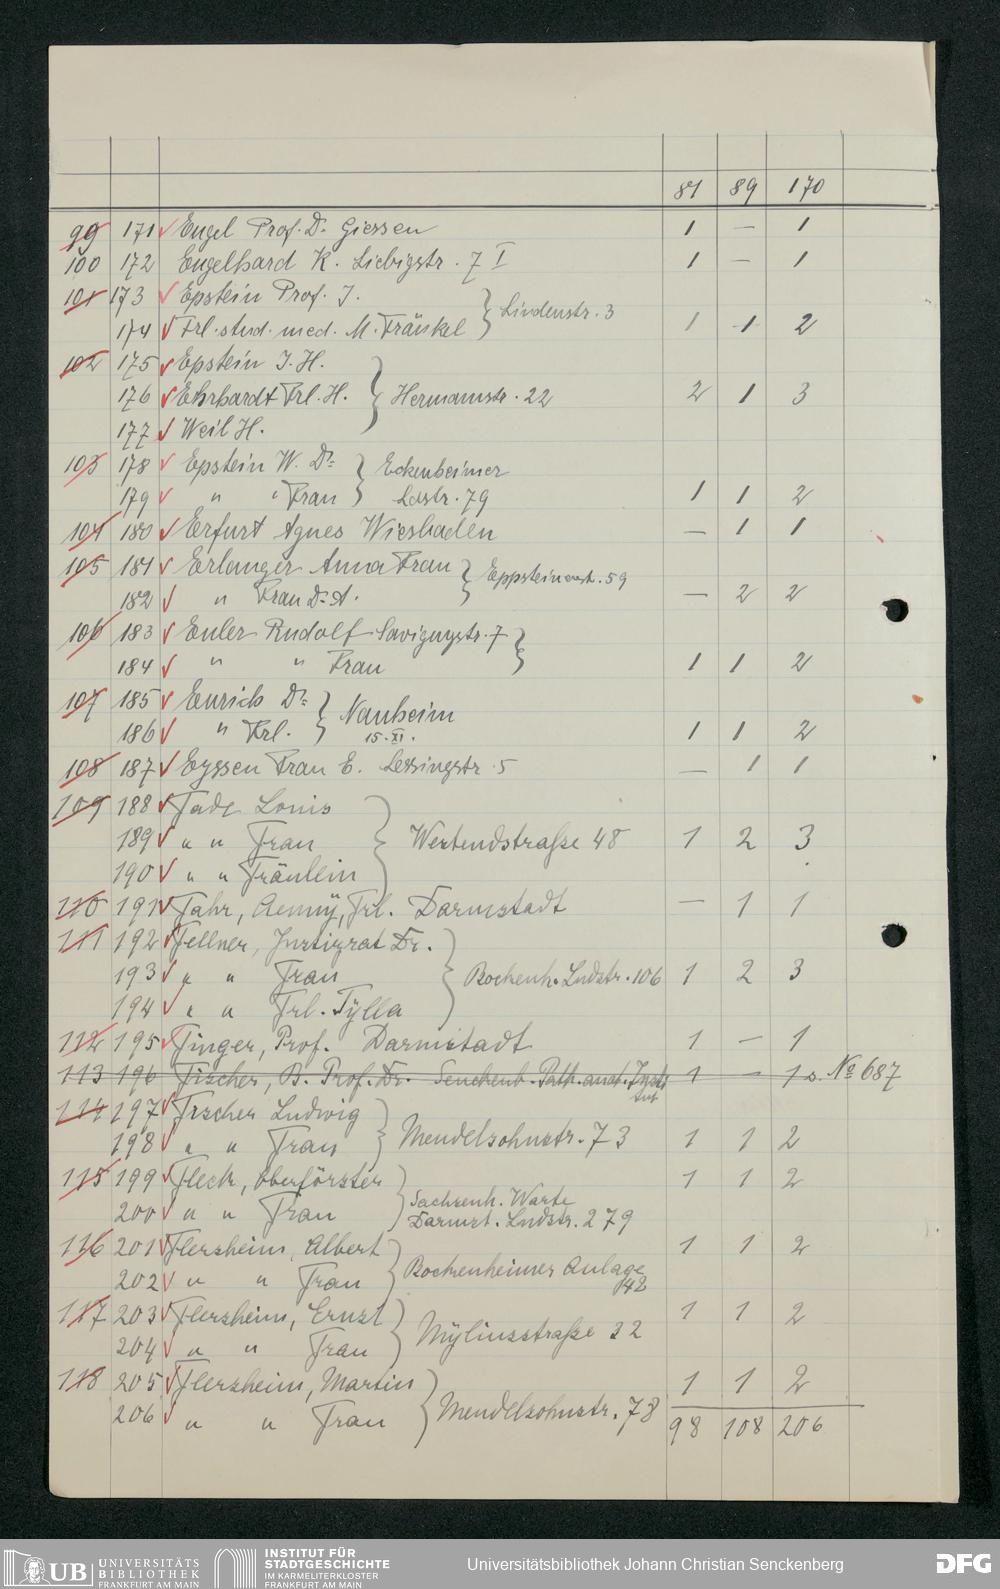 81 89 170
99 171 Engel Prof. Dr. Giessen 1 — 1
100 172 Engelhard K. Liebigstr. 7 I 1 — 1
101 173 Epstein Prof. J.
Lindenstr. 3
174 Frl. stud. med. M. Fränkel 1 1 2
102 175 Epstein J. H.
176 Ehrhardt Frl. H. Hermannstr. 22 2 1 3
177 Weil H.
103 178 Epstein W. Dr. Eckenheimer
179 " " Frau Ldstr. 79 1 1 2
104 180 Erfurt Agnes Wiesbaden — 1 1
105 181 Erlanger Anna Frau
Eppsteinerstr. 59
182 " Frau Dr. A. — 2 2
106 183 Euler Rudolf Savignystr. 7
184 " " Frau 1 1 2
107 185 Eurich Dr.
Nauheim
186 " Frl. 15. XI. 1 1 2
108 187 Eyssen Frau E. Lessingstr. 5 — 1 1
109 188 Fade Louis
189 " " Frau Westendstraße 48 1 2 3
190 " " Fräulein
110 191 Fahr, Aenny, Frl. Darmstadt — 1 1
111 192 Fellner, Justizrat Dr.
193 " " Frau Bockenh. Lndstr. 106 1 2 3
194 " " Frl. Tylla
112 195 Finger, Prof. Darmstadt 1 — 1
113 196 Fischer, B. Prof. Dr. Senckenb. Path. anat. Insti 1 — 1 s. No 687
tut
114 197 Fischer Ludwig
198 " " Frau Mendelsohnstr. 73 1 1 2
115 199 Fleck, Oberförster 1 1 2
Sachsenh. Warte
200 " " Frau Darmst. Lndstr. 279
116 201 Flersheim, Albert 1 1 2
Bockenheimer Anlage
202 " " Frau 42
117 203 Flersheim, Ernst 1 1 2
Myliusstraße 32
204 " " Frau
118 205 Flersheim, Martin 1 1 2
206 " " Frau Mendelsohnstr. 78
98 108 206
UB UNIVERSITÄTS
BIBLIOTHEK
FRANKFURT AM MAIN
INSTITUT FÜR
STADTGESCHICHTE
IM KARMELITERKLOSTER
FRANKFURT AM MAIN
Universitätsbibliothek Johann Christian Senckenberg
DFG